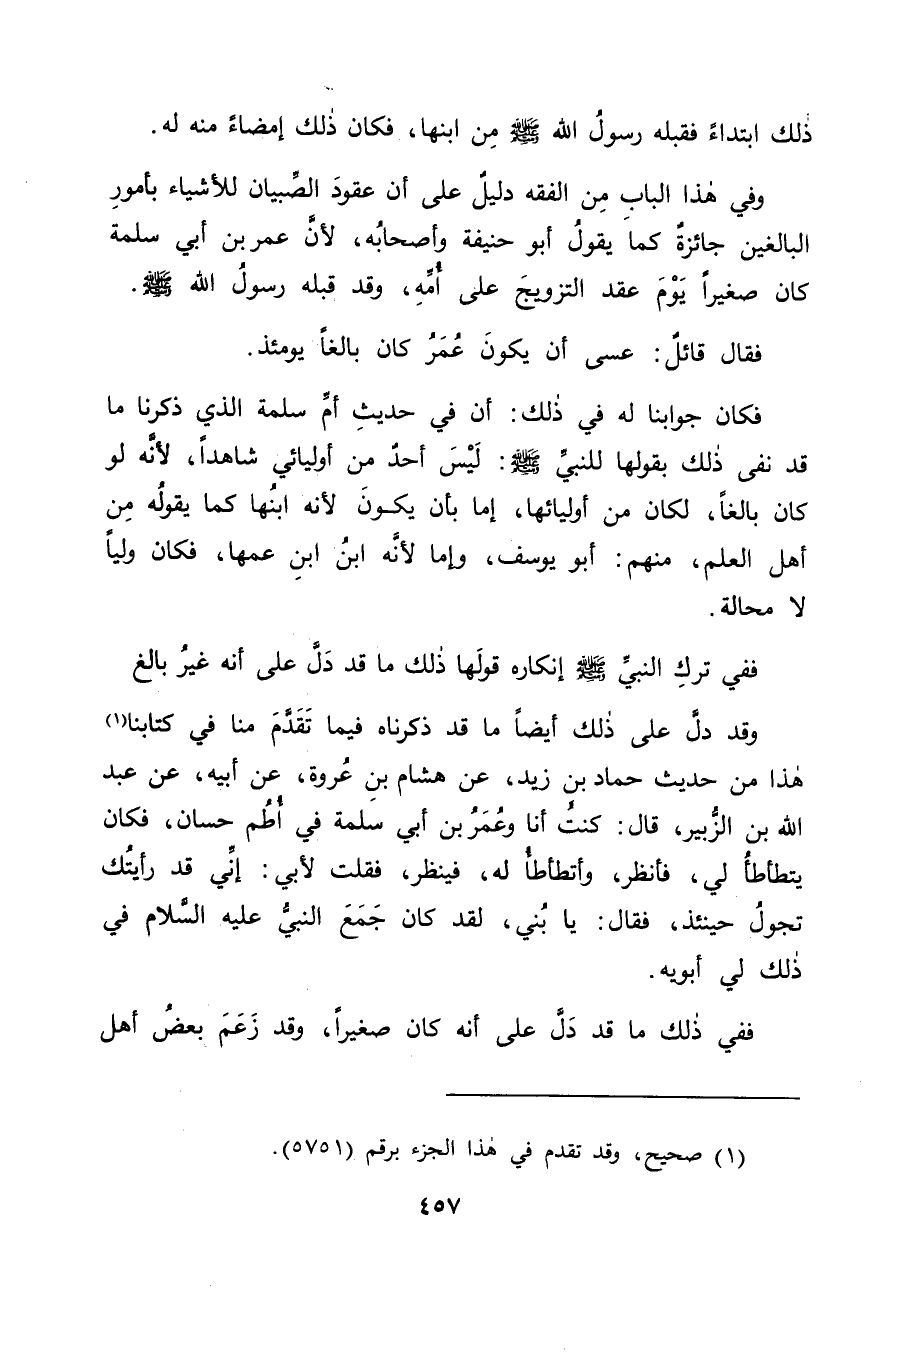 ذٰلك ابتداءً فقبله رسولُ الله ﷺ مِن ابنها، فكان ذٰلك إمضاءً منه له.
وفي هٰذا البابِ مِن الفقه دليلٌ على أن عقودَ الصِّبيان للأشياء بأمورِ
البالغين جائزةٌ كما يقولُ أبو حنيفة وأصحابُه، لأنَّ عمر بن أبي سلمة
كان صغيراً يَوْمَ عقد التزويجَ على أُمِّهِ، وقد قبله رسولُ الله ﷺ.
فقال قائلٌ: عسى أن يكونَ عُمَرُ كان بالغاً يومئذ.
فكان جوابنا له في ذٰلك: أن في حديثِ أمِّ سلمة الذي ذكرنا ما
قد نفى ذٰلك بقولها للنبيِّ ﷺ: لَيْسَ أحدٌ من أوليائي شاهداً، لأنَّه لو
كان بالغاً، لكان من أوليائها، إما بأن يكونَ لأنه ابنُها كما يقولُه مِن
أهل العلم، منهم: أبو يوسف، وإما لأنَّه ابنُ ابنِ عمها، فكان ولياً
لا محالة.
ففي تركِ النبيِّ ﷺ إنكاره قولَها ذٰلك ما قد دَلَّ على أنه غيرُ بالغ
وقد دلَّ على ذٰلك أيضاً ما قد ذكرناه فيما تَقَدَّمَ منا في كتابنا(١)
هٰذا من حديث حماد بن زيد، عن هشام بنِ عُروة، عن أبيه، عن عبد
الله بن الزُّبير، قال: كنتُ أنا وعُمَرُ بن أبي سَلمة في أُطُم حسان، فكان
يتطأطأُ لي، فأنظر، وأتطأطأُ له، فينظر، فقلت لأبي: إنِّي قد رأيتُك
تجولُ حينئذ، فقال: يا بُني، لقد كان جَمَعَ النبيُّ عليه السَّلام في
ذٰلك لي أبويه.
ففي ذٰلك ما قد دَلَّ على أنه كان صغيراً، وقد زَعَمَ بعضُ أهل
(١) صحيح، وقد تقدم في هٰذا الجزء برقم (٥٧٥١).
٤٥٧